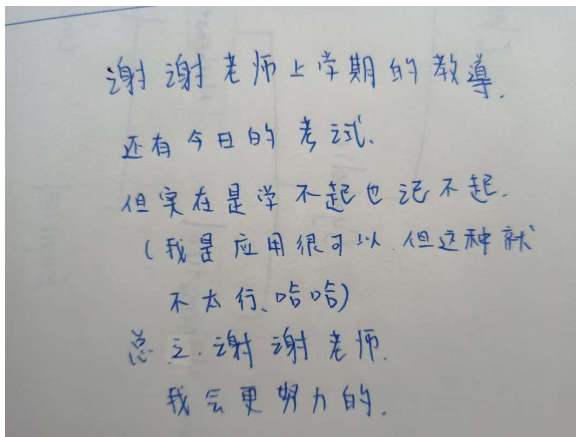 谢谢老师上学期的教导.
还有今日的考试.
但实在是学不起也记不起.
(我是应用很可以.但这种就
不太行、哈哈)
总之.谢谢老师.
我会更努力的.